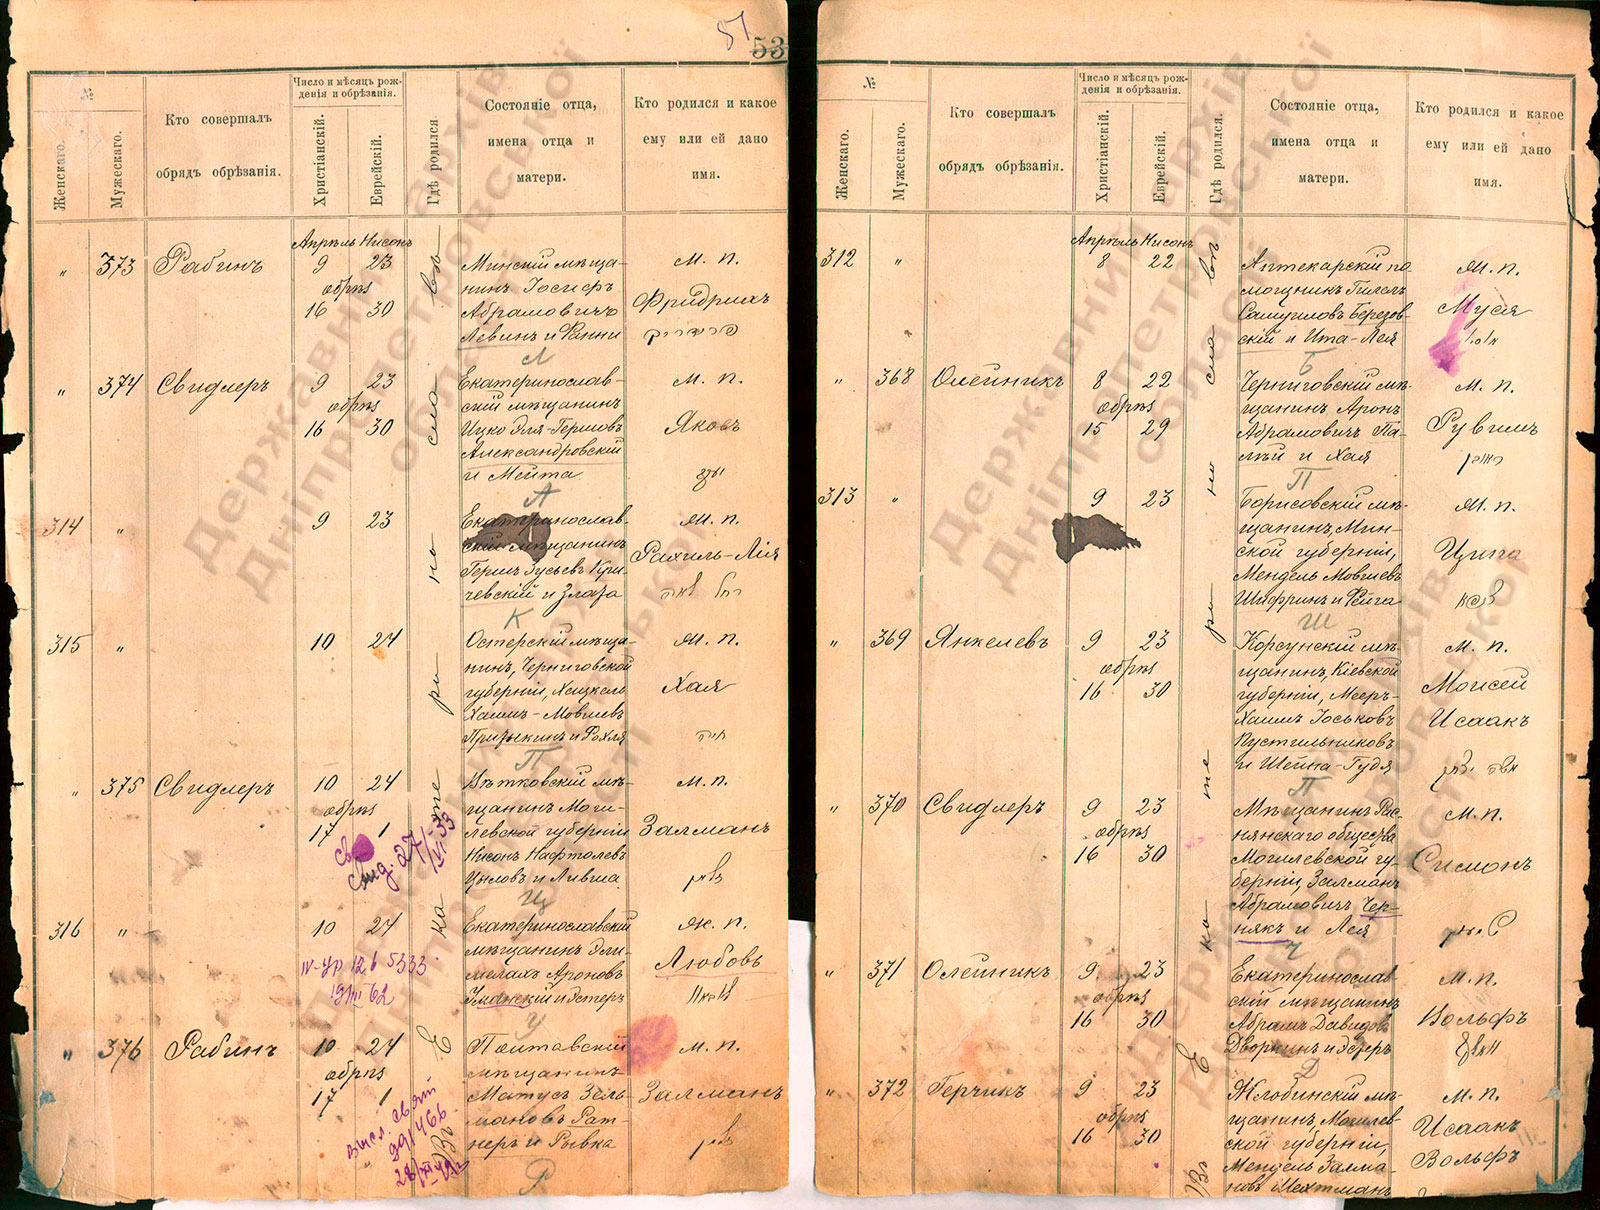 51
53
№
Женскаго.
Мужескаго.
Кто совершалъ
обрядъ обрѣзанія.
Число и мѣсяцъ рож-
денія и обрѣзанія.
Христіанскій.
Еврейскій.
Гдѣ родился.
Состояніе отца,
имена отца и
матери.
Кто родился и какое
ему или ей дано
имя.
Апрѣль Нисонъ
" 373 Рабинъ 9 23
обрѣз
16 30
Минскій мѣща-
нинъ Іосифъ
Абрамовичъ
Левинъ и Фанни
м. п.
Фридрихъ
Л
" 374 Свидлеръ 9 23
обрѣз
16 30
Екатеринослав-
скій мѣщанинъ
Ицко Эля-Гершовъ
Александровскій
и Мейта
м. п.
Яковъ
А
314 " 9 23
Екатеринослав-
скій мѣщанинъ
Гершъ Зусьевъ Кри-
чевскій и Злата
м. п.
Рахиль-Лія
К
315 " 10 24
Остерскій мѣща-
нинъ, Черниговской
губерніи, Хацкель
Хаимъ-Мовшевъ
и Рохля
м. п.
Хая
חיה
П
" 375 Свидлеръ 10 24
обрѣз
17 1
Вѣтковскій мѣ-
щанинъ Моги-
левской губерніи
Нисонъ Нафтолевъ
Цыловъ и Лившa
м. п.
Залманъ
Ц
316 " 10 24
Екатеринославскій
мѣщанинъ Эли-
мелахъ Ароновъ
Уманскій и Эстеръ
ж. п.
Любовь
У
" 376 Рабинъ 10 24
обрѣз
17 1
Полтавскій
мѣщанинъ
Матусъ Зель-
мановъ Рат-
неръ и Рывка
м. п.
Залманъ
Р
Въ Екатеринославѣ
№
Женскаго.
Мужескаго.
Кто совершалъ
обрядъ обрѣзанія.
Число и мѣсяцъ рож-
денія и обрѣзанія.
Христіанскій.
Еврейскій.
Гдѣ родился.
Состояніе отца,
имена отца и
матери.
Кто родился и какое
ему или ей дано
имя.
Апрѣль Нисонъ
312 " 8 22
Аптекарскій по-
мощникъ Гилелъ
Самуиловъ Березов-
скій и Ита-Лея
м. п.
Муся
Б
" 368 Олейникъ 8 22
обрѣз
15 29
Черниговскій мѣ-
щанинъ Аронъ
Абрамовичъ Па-
лѣй и Хая
м. п.
Рувимъ
П
313 " 9 23
Борисовскій мѣ-
щанинъ, Мин-
ской губерніи,
Мендель Мовшевъ
Шифринъ и Фейга
м. п.
Ципа
Ш
" 369 Янкелевъ 9 23
обрѣз
16 30
Корсунскій мѣ-
щанинъ, Кіевской
губерніи, Мееръ-
Хаимъ Іоськовъ
Пустильниковъ
и Шейна-Гудя
м. п.
Моисей
Исаакъ
П
" 370 Свидлеръ 9 23
обрѣз
16 30
Мѣщанинъ Рас-
нянскаго общества
Могилевской гу-
берніи, Залманъ
Абрамовичъ Чер-
някъ и Лея
м. п.
Симонъ
Ч
" 371 Олейникъ 9 23
обрѣз
16 30
Екатеринослав
скій мѣщанинъ
Абрамъ Давидовъ
Дворкинъ и Эстеръ
м. п.
Вольфъ
Д
" 372 Герчикъ 9 23
обрѣз
16 30
Жлобинскій мѣ-
щанинъ, Могилев-
ской губерніи,
Мендель Залма-
новъ Мехтманъ
м. п.
Исаакъ
Вольфъ
Въ Екатеринославѣ